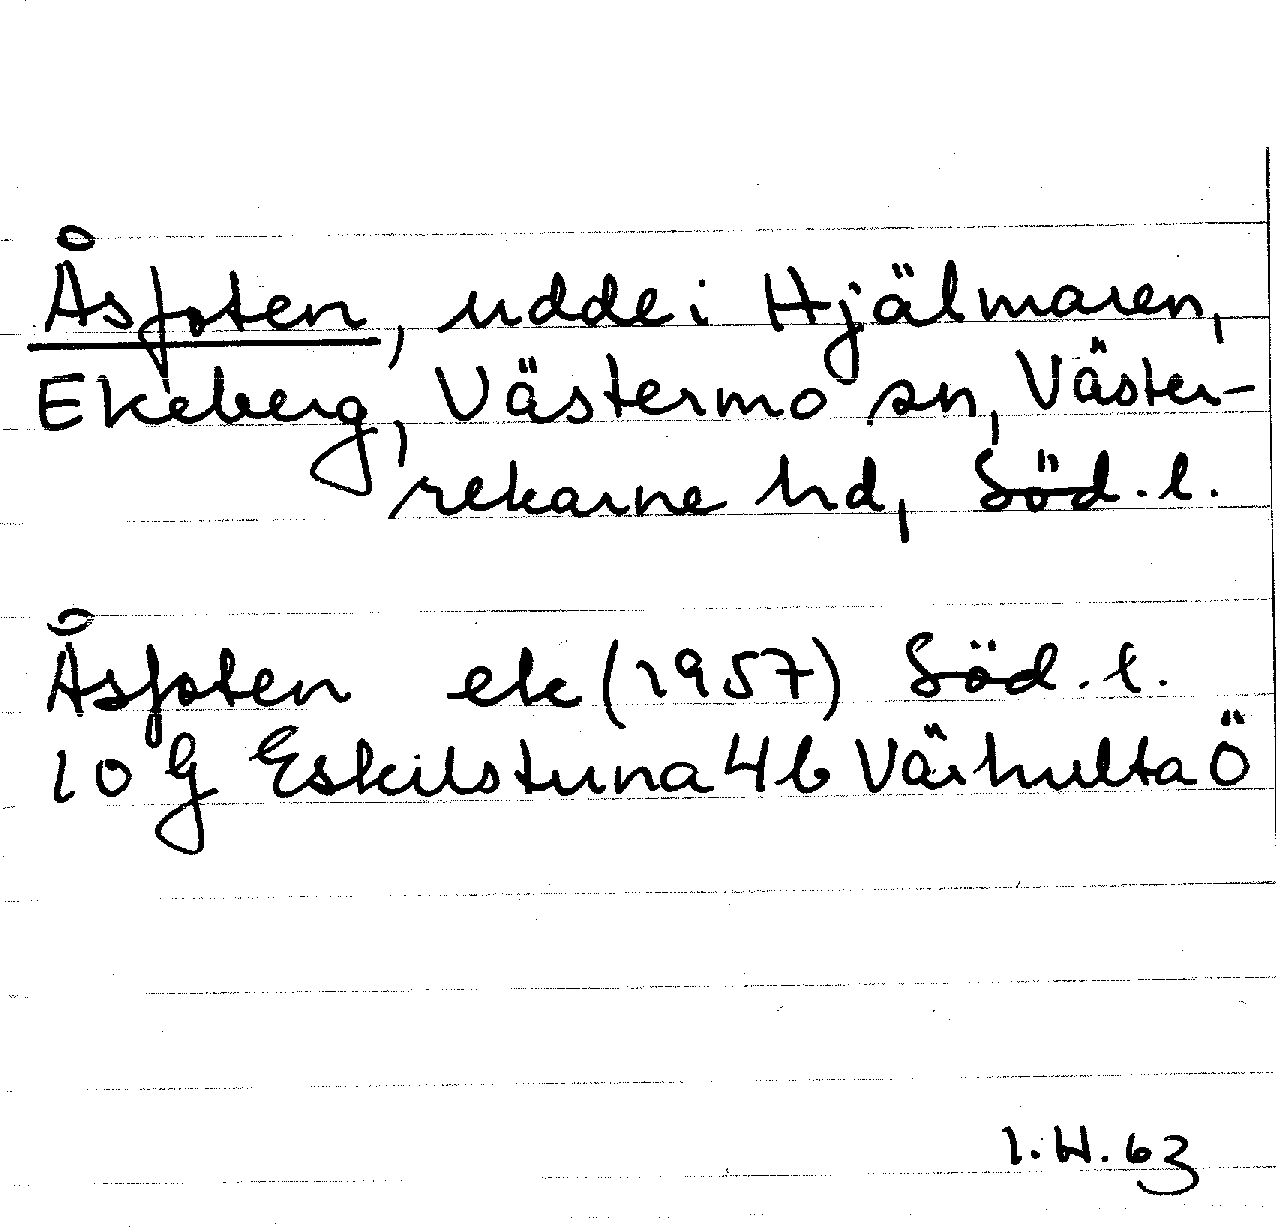 Åsfoten, udde i Hjälmaren,
Ekeberg, Västermo sn, Väster-
rekarne hd, Söd. l.
Åsfoten ek (1957) Söd. l.
10 G Eskilstuna 4b Värhulta Ö
I.W. 63